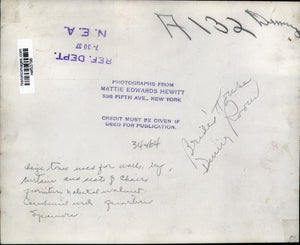 A132 Dining
N.E.A.
7-30-37
REF. DEPT.
PHOTOGRAPHS FROM
MATTIE EDWARDS HEWITT
536 FIFTH AVE., NEW YORK
CREDIT MUST BE GIVEN IF
USED FOR PUBLICATION.
Bride's House
Dining Room
Beige tone used for walls, rug,
curtains and seats of chairs
furniture natural walnut
combined with